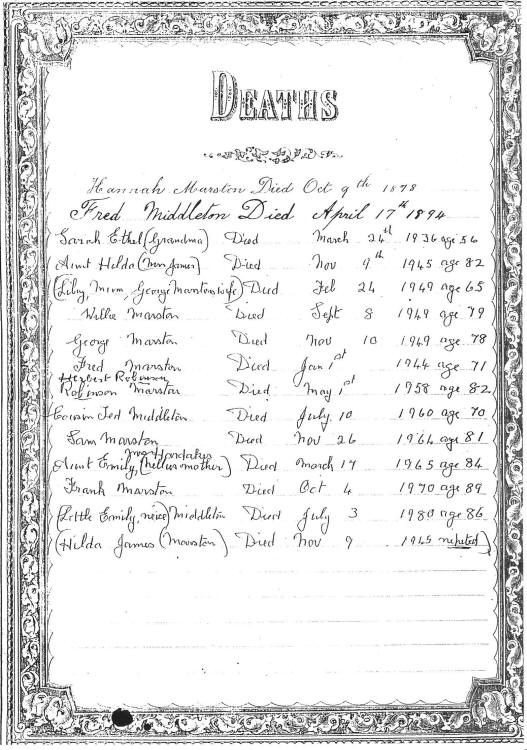 DEATHS
Hannah Marston Died Oct 9th 1878
Fred Middleton Died April 17th 1894
Sarah Ethel (Grandma) Died March 24th 1936 age 56
Aunt Hilda (Mrs James) Died Nov 9th 1945 age 82
(Lily, Mum, George Marstons wife) Died Feb 24 1949 age 65
Willie Marston Died Sept 8 1949 age 79
George Marston Died Nov 10 1949 age 78
Fred Marston Died Jan 1st 1944 age 71
Herbert Robinson
Robinson Marston Died May 1st 1958 age 82
Cousin Ted Middleton Died July 10 1960 age 70
Sam Marston Died Nov 26 1964 age 81
E
Aunt Emily, (Nellies mother) Died March 17 1965 age 84
Frank Marston Died Oct 4 1970 age 89
(Little Emily, neice) Middleton Died July 3 1980 age 86
(Hilda James (Marston) Died Nov 9 1945 repeted)